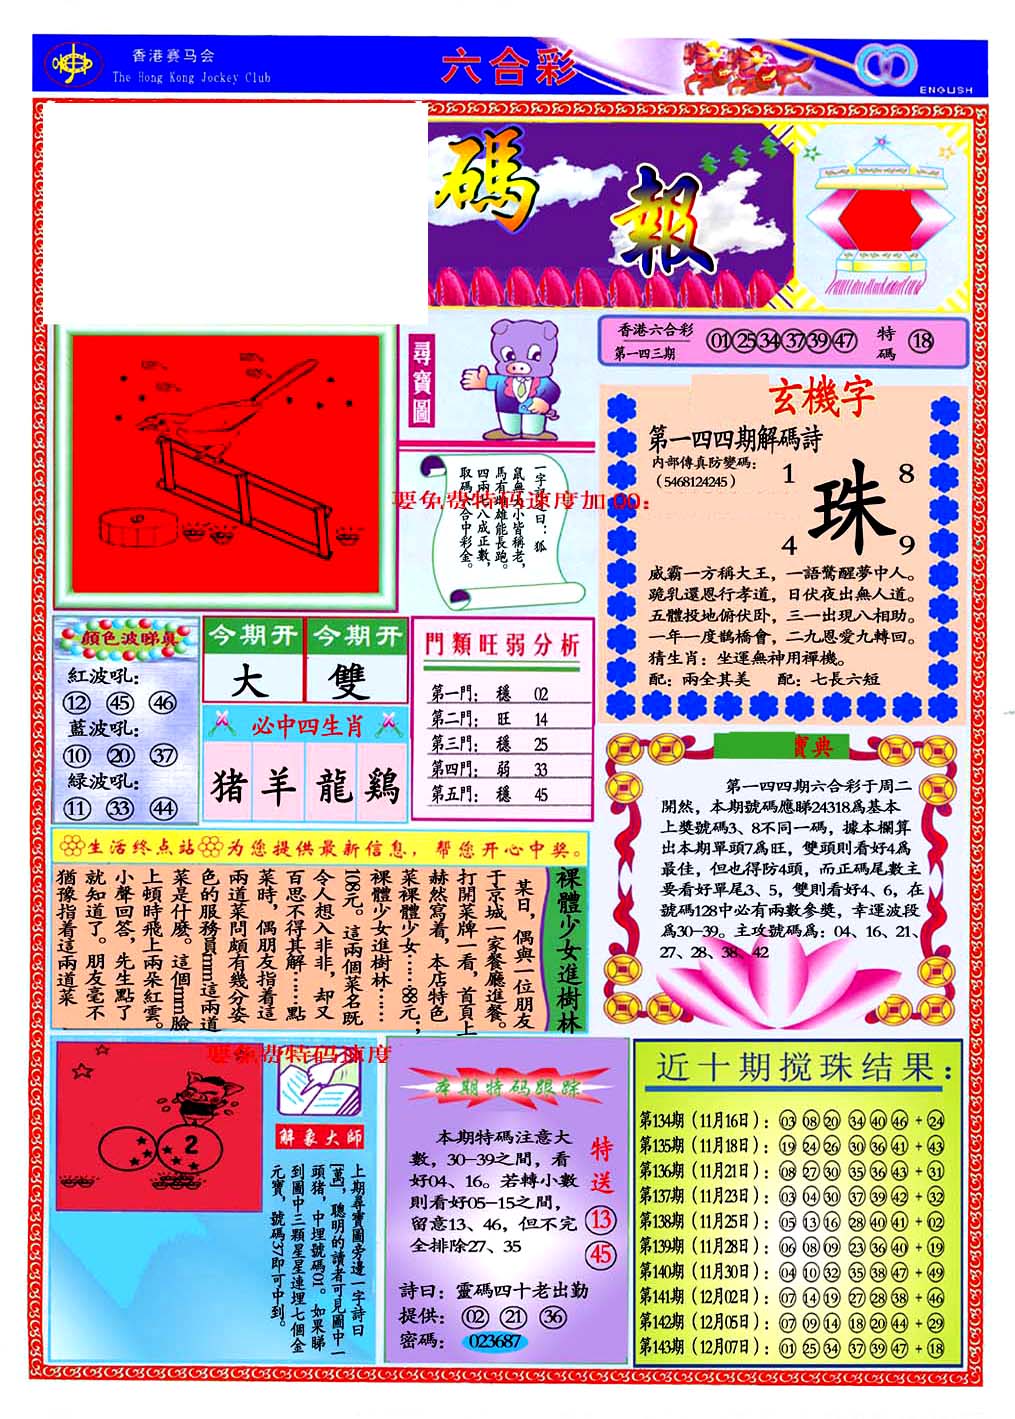 香港赛马会
The Hong Kong Jockey Club
六合彩
ENGLISH
碼報
尋寶圖
香港六合彩
第一四三期
01 25 34 37 39 47
特碼
18
玄機字
第一四四期解碼詩
内部傳真防變碼:
(5468124245)
1 8
珠
4 9
威霸一方稱大王，一語驚醒夢中人。
跪乳還恩行孝道，日伏夜出無人道。
五體投地俯伏卧，三一出現八相助。
一年一度鵲橋會，二九恩愛九轉回。
猜生肖：坐運無神用禪機。
配：兩全其美 配：七長六短
要免费特码速度加 00:
四兩七八成正數，
取碼六合中彩金。
顏色波睇真
紅波吼:
12 45 46
藍波吼:
10 20 37
緑波吼:
11 33 44
今期开 今期开
大 雙
必中四生肖
猪 羊 龍 鷄
門類旺弱分析
第一門： 穩 02
第二門： 旺 14
第三門： 穩 25
第四門： 弱 33
第五門： 穩 45
寶典
第一四四期六合彩于周二
開然，本期號碼應睇24318爲基本
上奬號碼3、8不同一碼，據本欄算
出本期單頭7爲旺，雙頭則看好4爲
最佳，但也得防4頭，而正碼尾數主
要看好單尾3、5，雙則看好4、6，在
號碼128中必有兩數參奬，幸運波段
爲30-39。主攻號碼爲：04、16、21、
27、28、38、42
生活终点站 为您提供最新信息，帮您开心中奖。
裸體少女進樹林
某日，偶與一位朋友
于京城一家餐廳進餐。
打開菜牌一看，首頁上
赫然寫着，本店特色
菜裸體少女……88元；
裸體少女進樹林……
108元。這兩個菜名既
令人想入非非，却又
百思不得其解……點
菜時，偶朋友指着這
兩道菜問頗有幾分姿
色的服務員mm:這兩道
菜是什麽。這個mm臉
上頓時飛上兩朵紅雲。
小聲回答，先生點了
就知道了。朋友毫不
猶豫指着這兩道菜
要免费特码速度
2
解象大師
上期尋寶圖旁邊一字詩曰
[萬]，聰明的讀者可見圖中一
頭猪，中埋號碼01。如果睇
到圖中三顆星星連埋七個金
元寶，號碼37即可中到。
本期特码跟踪
本期特碼注意大
數，30-39之間，看
好04、16。若轉小數
則看好05-15之間，
留意13、46，但不完
全排除27、35
特送
13
45
詩曰：靈碼四十老出勤
提供： 02 21 36
密碼： 023687
近十期搅珠结果：
第134期（11月16日）：03 08 20 34 40 46 + 24
第135期（11月18日）：19 24 26 30 36 41 + 43
第136期（11月21日）：08 27 30 35 36 43 + 31
第137期（11月23日）：03 04 30 37 39 42 + 32
第138期（11月25日）：05 13 16 28 40 41 + 02
第139期（11月28日）：06 08 09 23 36 40 + 19
第140期（11月30日）：04 10 32 35 38 47 + 49
第141期（12月02日）：07 14 19 27 28 38 + 46
第142期（12月05日）：07 09 14 18 20 44 + 29
第143期（12月07日）：01 25 34 37 39 47 + 18